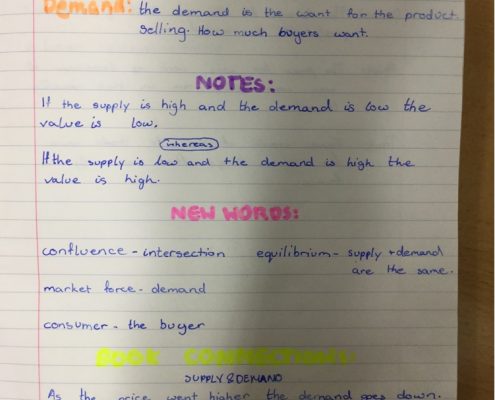 Demand: the demand is the want for the product
selling. How much buyers want.
NOTES:
If the supply is high and the demand is low the
value is low.
whereas
If the supply is low and the demand is high the
value is high.
NEW WORDS:
confluence - intersection equilibrium - supply + demand
are the same.
market force - demand
consumer - the buyer
BOOK CONNECTIONS:
SUPPLY & DEMAND
As the price went higher the demand goes down.